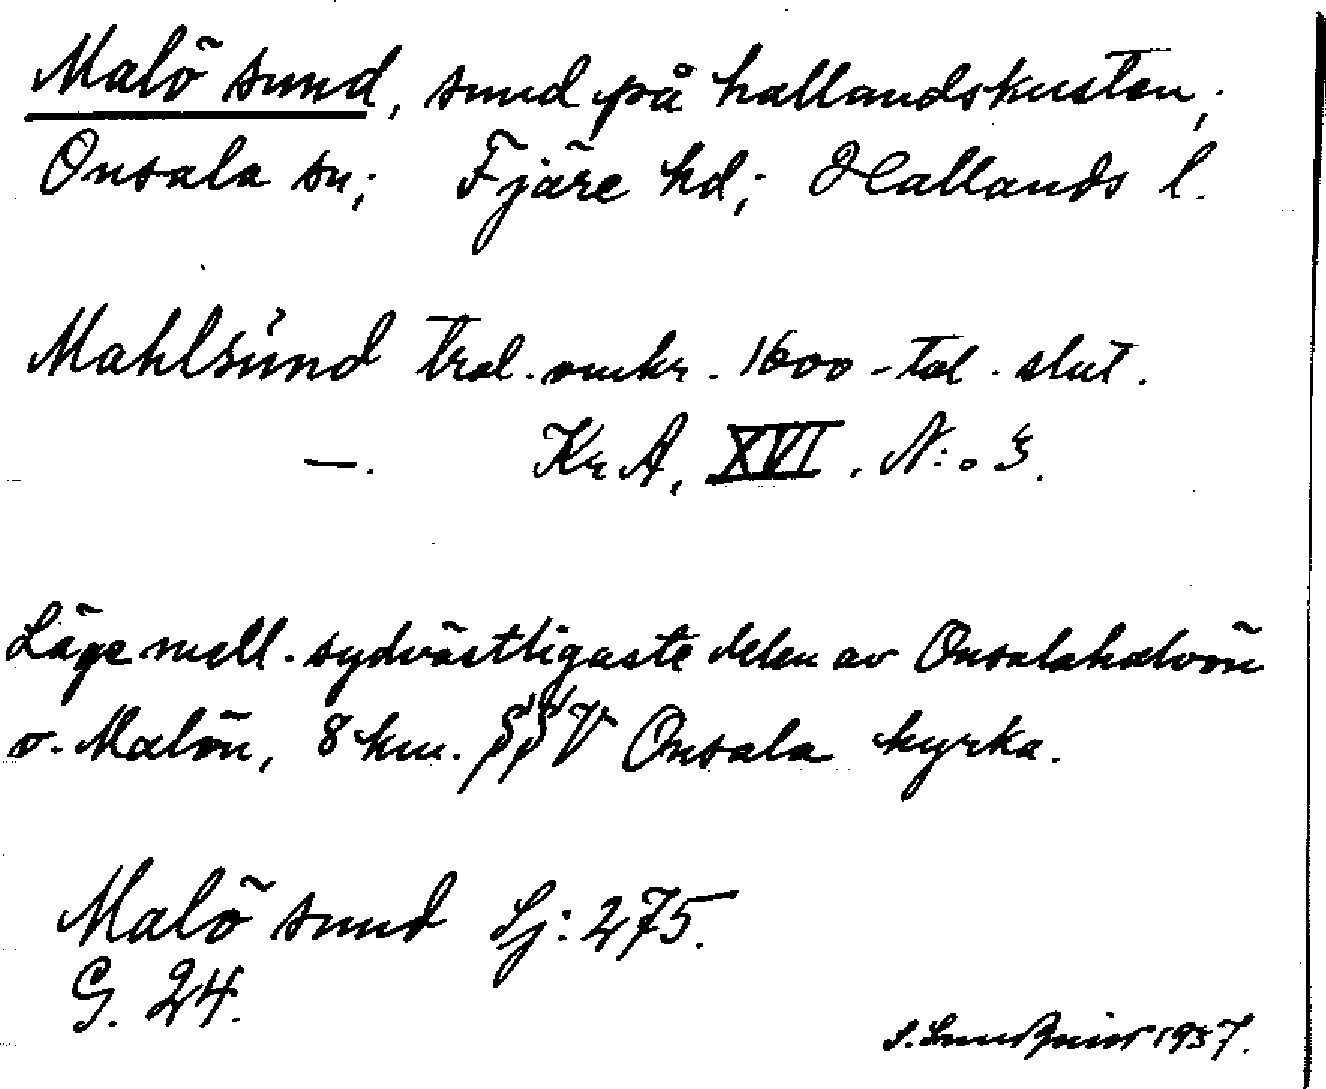 Malö sund, sund på hallandskusten,
Onsala sn; Fjäre hd; Hallands l.
Mahlsünd trol. omkr. 1600-tal. slut.
—. Kr A, XVI. N:o 3.
Läge mell. sydvästligaste delen av Onsalahalvön
o. Malön, 8 km. SSV Onsala kyrka.
Malö sund Sj: 275.
G. 24.
1937.